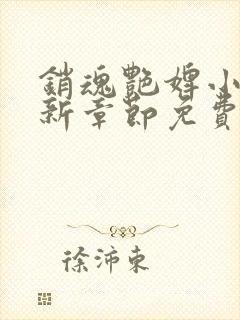 銷魂艷婢小
新章節免費
徐沛東